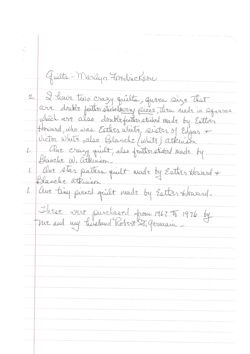 Quilts - Marilyn
2. I have two crazy quilts, queen size that
are double feather stitched, these made in squares
which are also double feather stitched made by Esther
Howard, who was Esther White, sister of Edgar +
Victor White, also Blanche (White) Atkinson
1. One crazy quilt, also feather stitched made by
Blanche W. Atkinson.
1. One star pattern quilt made by Esther Howard &
Blanche Atkinson
1. One tiny pieced quilt made by Esther Howard.
These were purchased from 1967 to 1976 by
me and my husband Robert St. Germain.